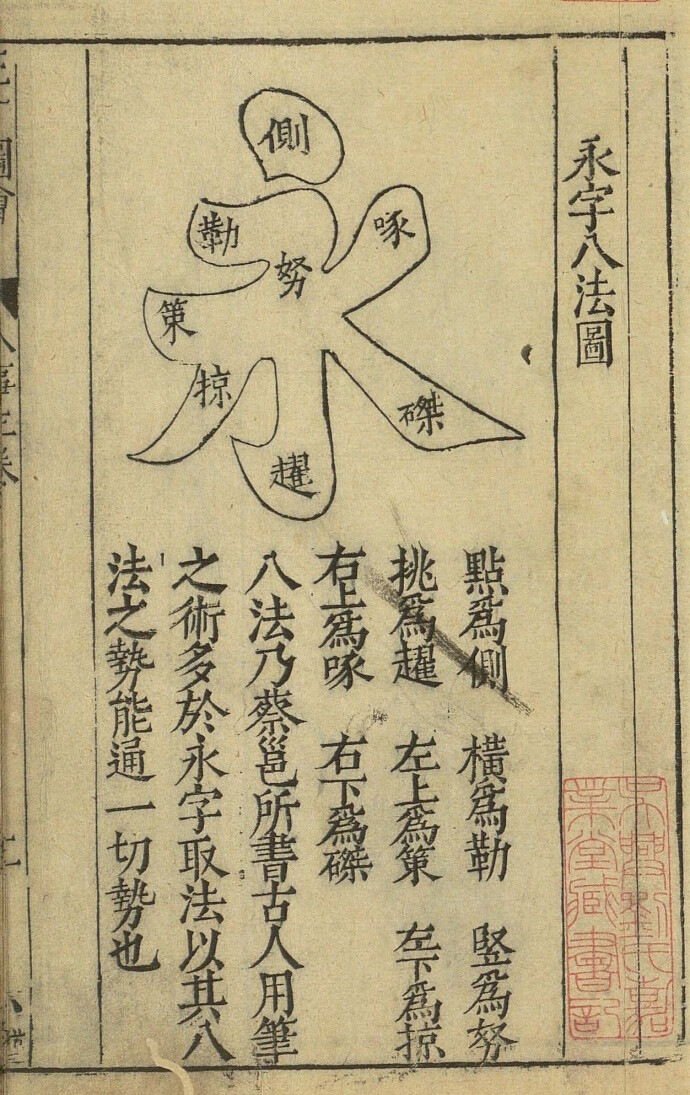 永字八法圖
側
勒
努
啄
策
掠
磔
趯
點爲側 橫爲勒 竪爲努
挑爲趯 左上爲策 左下爲掠
右上爲啄 右下爲磔
八法乃蔡邕所書古人用筆
之術多於永字取法以其八
法之勢能通一切勢也
吳興劉氏嘉
業堂藏書記
圖會
人事三卷